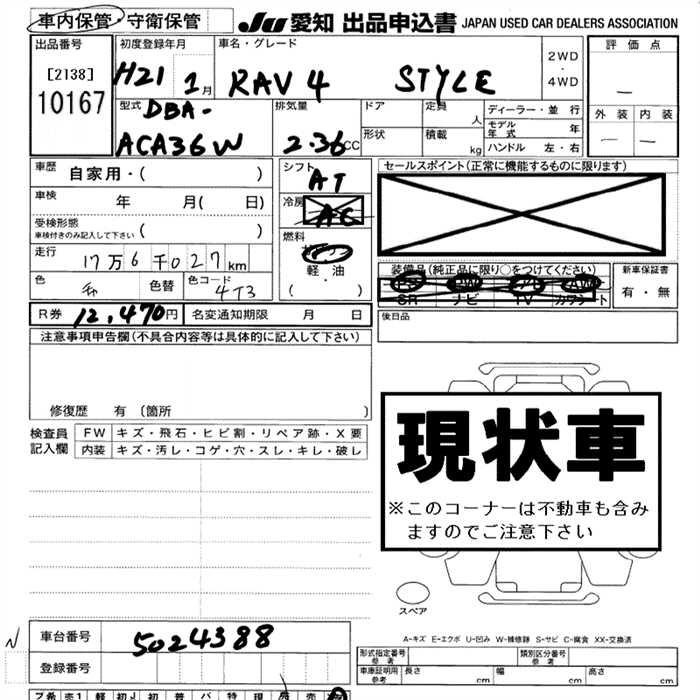 車内保管・守衛保管 Ju 愛知 出品申込書 JAPAN USED CAR DEALERS ASSOCIATION
出品番号
[2138]
10167
初度登録年月
H21 1月
車名・グレード
RAV4 STYLE
2WD
・
4WD
評価点
—
外装 内装
— —
型式
DBA-
ACA36W
排気量
2.36cc
ドア
形状
定員 人
積載 kg
ディーラー・並行
モデル年式 年
ハンドル 左・右
車歴 自家用・( )
車検 年 月( 日)
受検形態
車検付きのみ記入して下さい ( )
走行 17万6千027km
色
色替
色コード
4T3
シフト
AT
冷房
AC
燃料
ガソリン
軽油
( ・ )
セールスポイント(正常に機能するものに限ります)
装備品(純正品に限り○をつけてください)
PS PW AW
SR ナビ TV カワシート
新車保証書
有・無
R券 12,470円 名変通知期限 月 日
後日品
注意事項申告欄(不具合内容等は具体的に記入して下さい)
修復歴 有 〔箇所 〕
検査員
記入欄
FW キズ・飛石・ヒビ割・リペア跡・X要
内装 キズ・汚レ・コゲ・穴・スレ・キレ・破レ
現状車
※このコーナーは不動車も含み
ますのでご注意下さい
スペア
A-キズ E-エクボ U-凹み W-補修跡 S-サビ C-腐食 XX-交換済
N
車台番号 5024388
登録番号
形式指定番号
参考
類別区分番号
参考
車庫証明用
参考
長さ cm 幅 cm 高さ cm